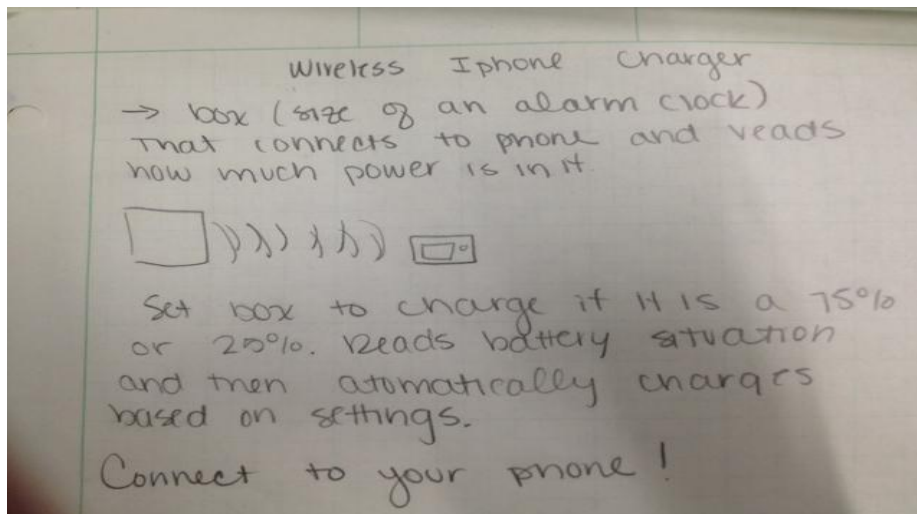 Wireless Iphone Charger
→ box (size of an alarm clock)
That connects to phone and reads
how much power is in it.
Set box to charge if it is a 75%
or 25%. Reads battery situation
and then atomatically charges
based on settings.
Connect to your phone!